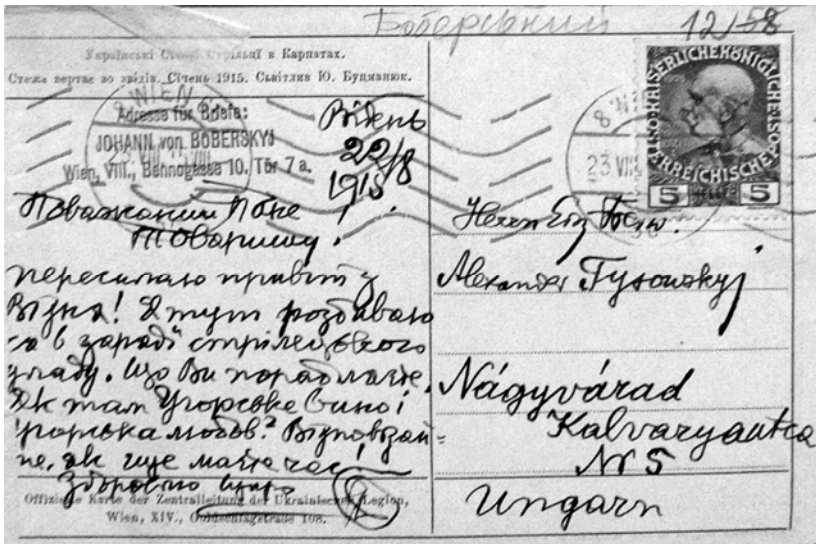 Боберський 12/58
Українські Січові Стрільці в Карпатах.
Стежа вертає зо звідів. Січень 1915. Сьвітлив Ю. Буцманюк.
8 WIEN
Adresse für Briefe:
JOHANN von BOBERSKYJ
Wien, VIII., Bennogasse 10. Tür 7 a.
Відень
22/8
1915
Поважаний Пане
Товаришу!
пересилаю привіт з
Відня! Я тут роздаваю
ся в заряді стрілецкого
уладу. Що Ви порабляєте.
Як там Угорське вино і
угорська любов? Відповідай-
те, як ще маєте час!
Здоровлю щиро
Offizielle Karte der Zentralleitung der Ukrainischen Legion,
Wien, XIV., Goldschlagstraße 108.
KAISERLICHE KÖNIGLICHE ÖSTERREICHISCHE POST
5 HELLER 5
8 W
23 VIII
Herrn Einj. Freiw.
Alexander Tysowskyj
Nágyvárad
Kalvaryautca
Nr 5
Ungarn